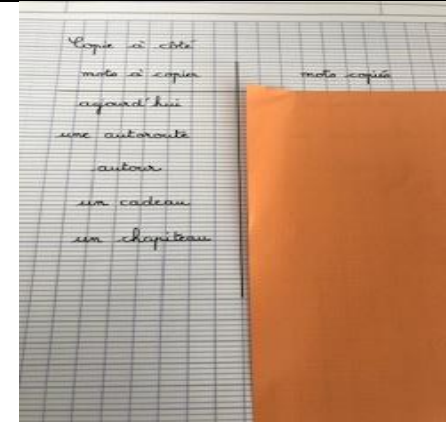 Copie à côté
mots à copier
mots copiés
ajourd'hui
une autoroute
autour
un cadeau
un chapiteau